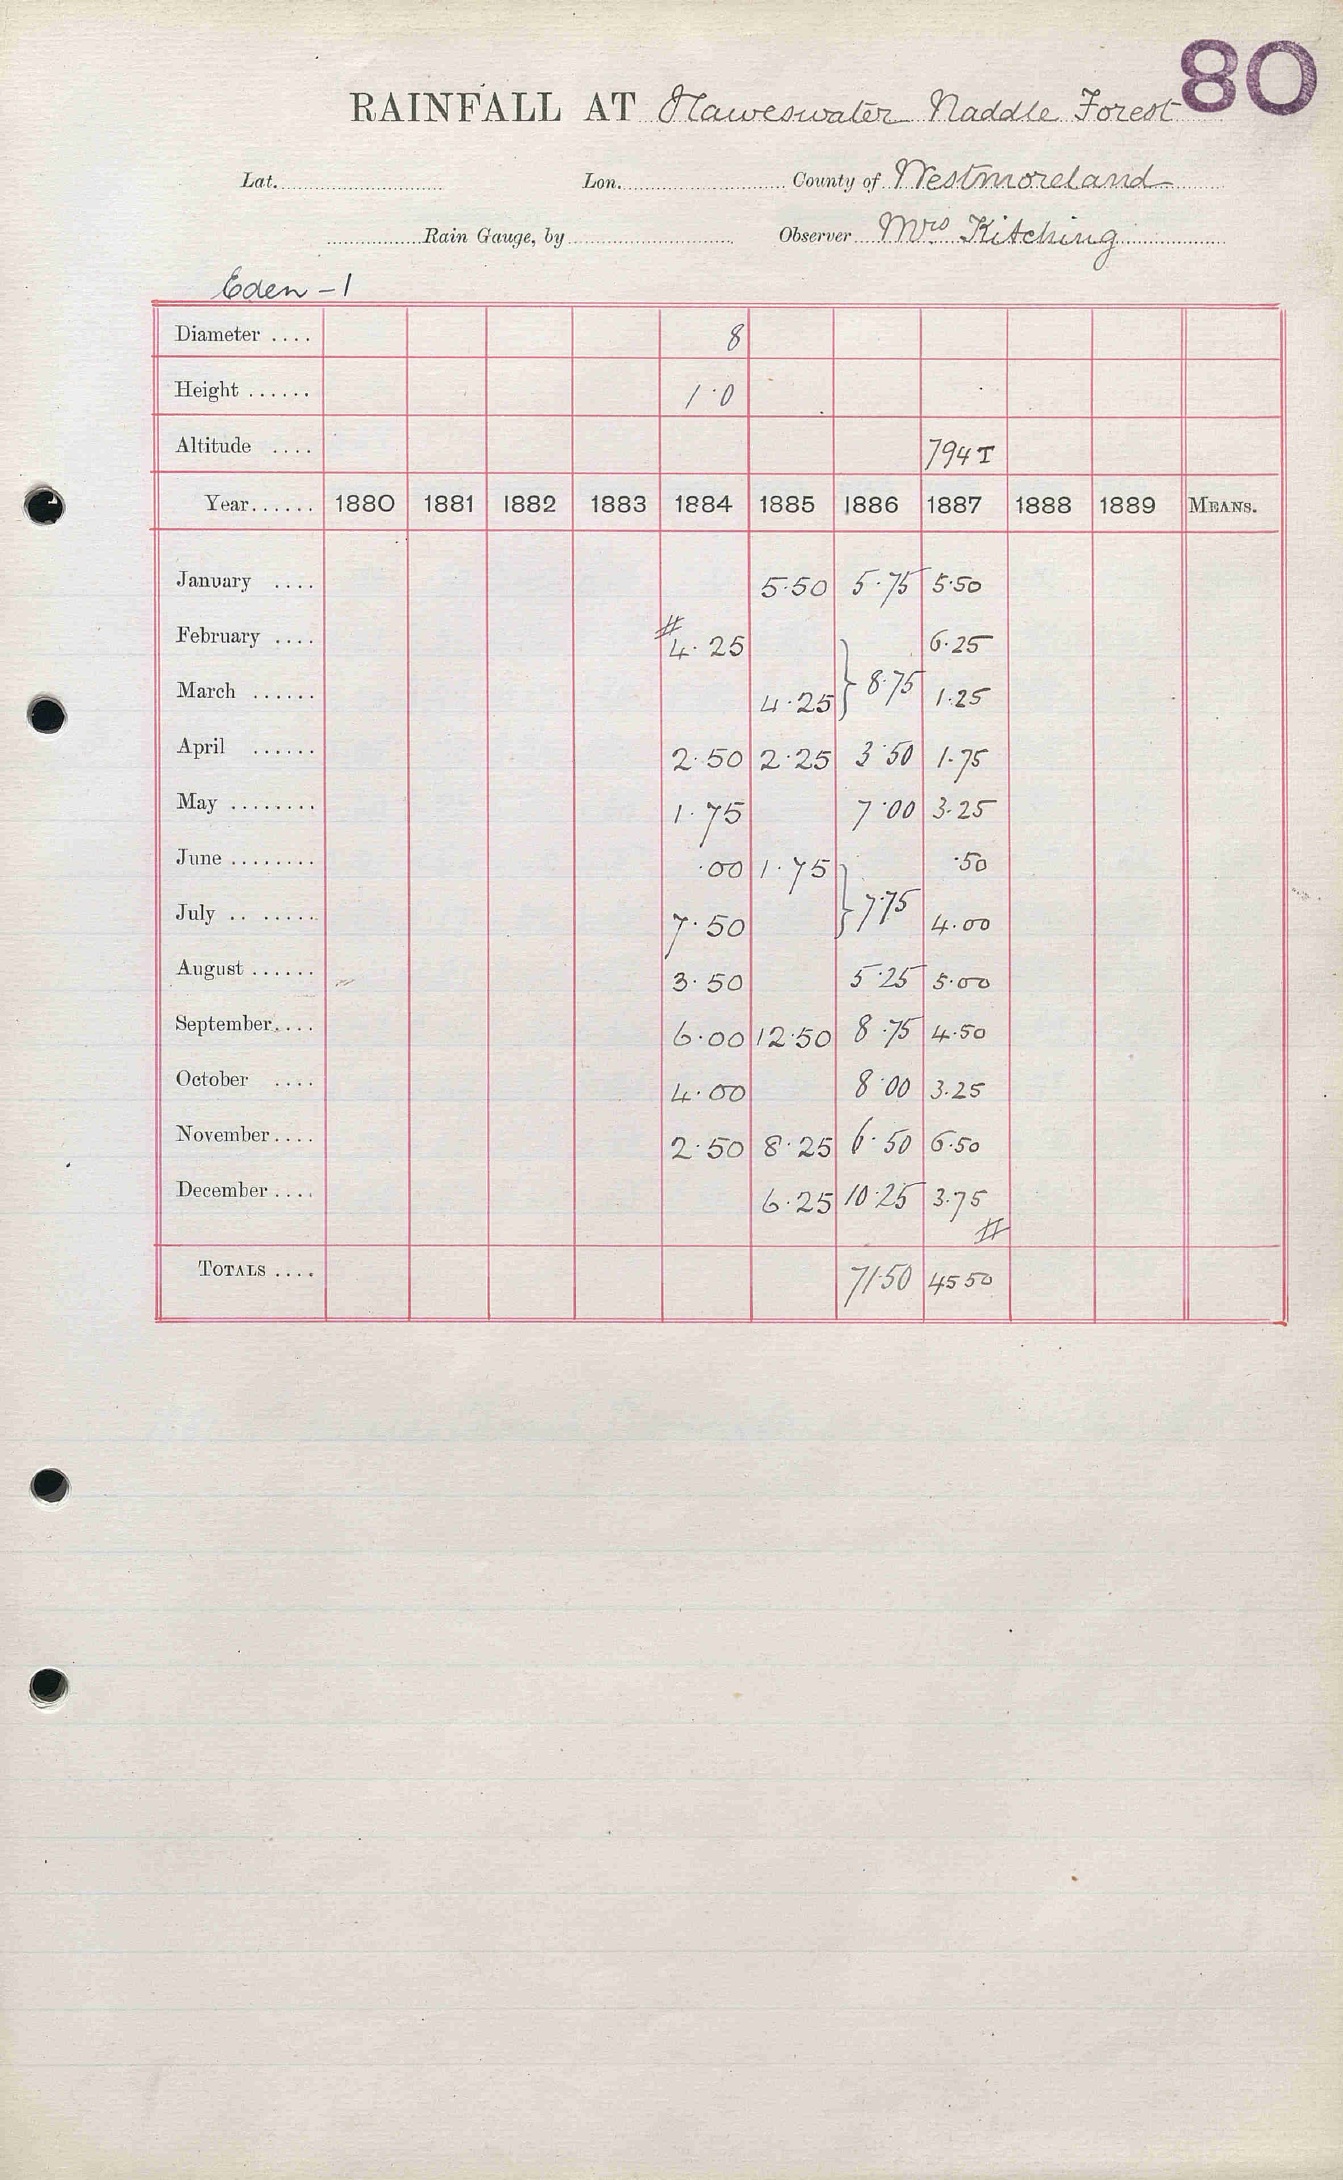 80
RAINFALL AT Haweswater Naddle Forest
Lat. Lon. County of Westmoreland
Rain Gauge, by Observer Mrs Kitching
Eden - 1
Diameter .... 8
Height ...... 1.0
Altitude .... 794 T
Year...... 1880 1881 1882 1883 1884 1885 1886 1887 1888 1889 MEANS.
January .... 5.50 5.75 5.50
February .... # 4.25 6.25
March ...... 4.25 } 8.75 1.25
April ...... 2.50 2.25 3.50 1.75
May ........ 1.75 7.00 3.25
June ........ .00 1.75 .50
July .. ...... 7.50 } 7.75 4.00
August ...... 3.50 5.25 5.00
September.... 6.00 12.50 8.75 4.50
October .... 4.00 8.00 3.25
November.... 2.50 8.25 6.50 6.50
December.... 6.25 10.25 3.75
#
TOTALS .... 71.50 45 50